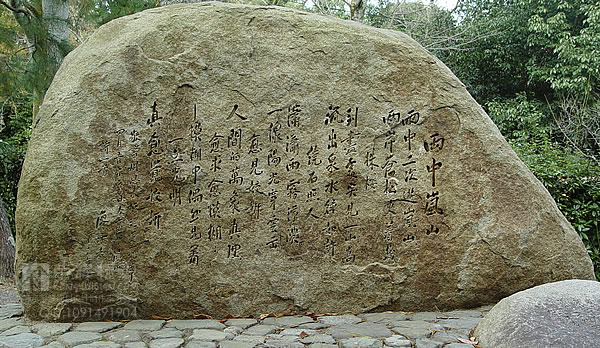 雨中嵐山
雨中二次遊嵐山
兩岸蒼松夾着幾
株櫻
到盡處突見一山高
流出泉水綠如許
繞石照人
瀟瀟雨霧濛濃
一線陽光穿雲出
愈見姣妍
人間的萬象真理
愈求愈模糊
—模糊中偶然見着
一點光明
真愈覺姣妍
QQ:1091491904